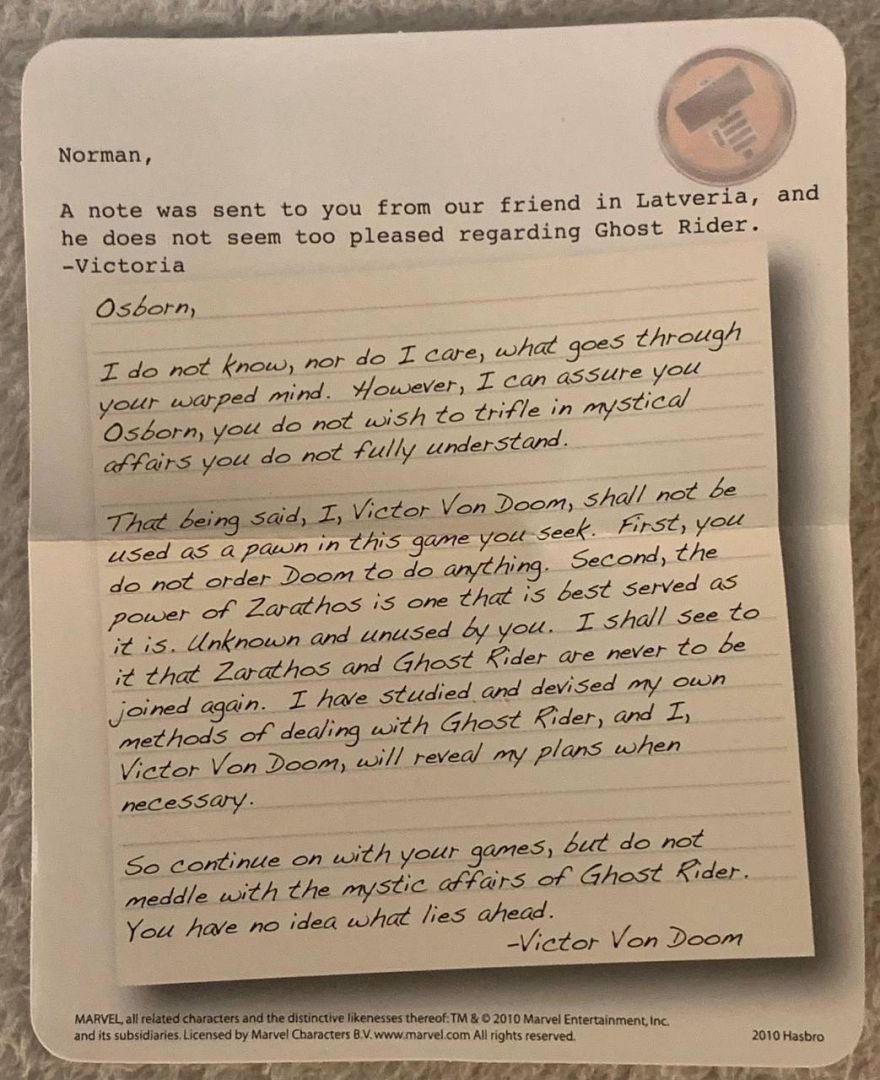 Norman,
A note was sent to you from our friend in Latveria, and
he does not seem too pleased regarding Ghost Rider.
-Victoria
Osborn,
I do not know, nor do I care, what goes through
your warped mind. However, I can assure you
Osborn, you do not wish to trifle in mystical
affairs you do not fully understand.
That being said, I, Victor Von Doom, shall not be
used as a pawn in this game you seek. First, you
do not order Doom to do anything. Second, the
power of Zarathos is one that is best served as
it is. Unknown and unused by you. I shall see to
it that Zarathos and Ghost Rider are never to be
joined again. I have studied and devised my own
methods of dealing with Ghost Rider, and I,
Victor Von Doom, will reveal my plans when
necessary.
So continue on with your games, but do not
meddle with the mystic affairs of Ghost Rider.
You have no idea what lies ahead.
-Victor Von Doom
MARVEL, all related characters and the distinctive likenesses thereof: TM & © 2010 Marvel Entertainment, Inc.
and its subsidiaries. Licensed by Marvel Characters B.V. www.marvel.com All rights reserved.
2010 Hasbro